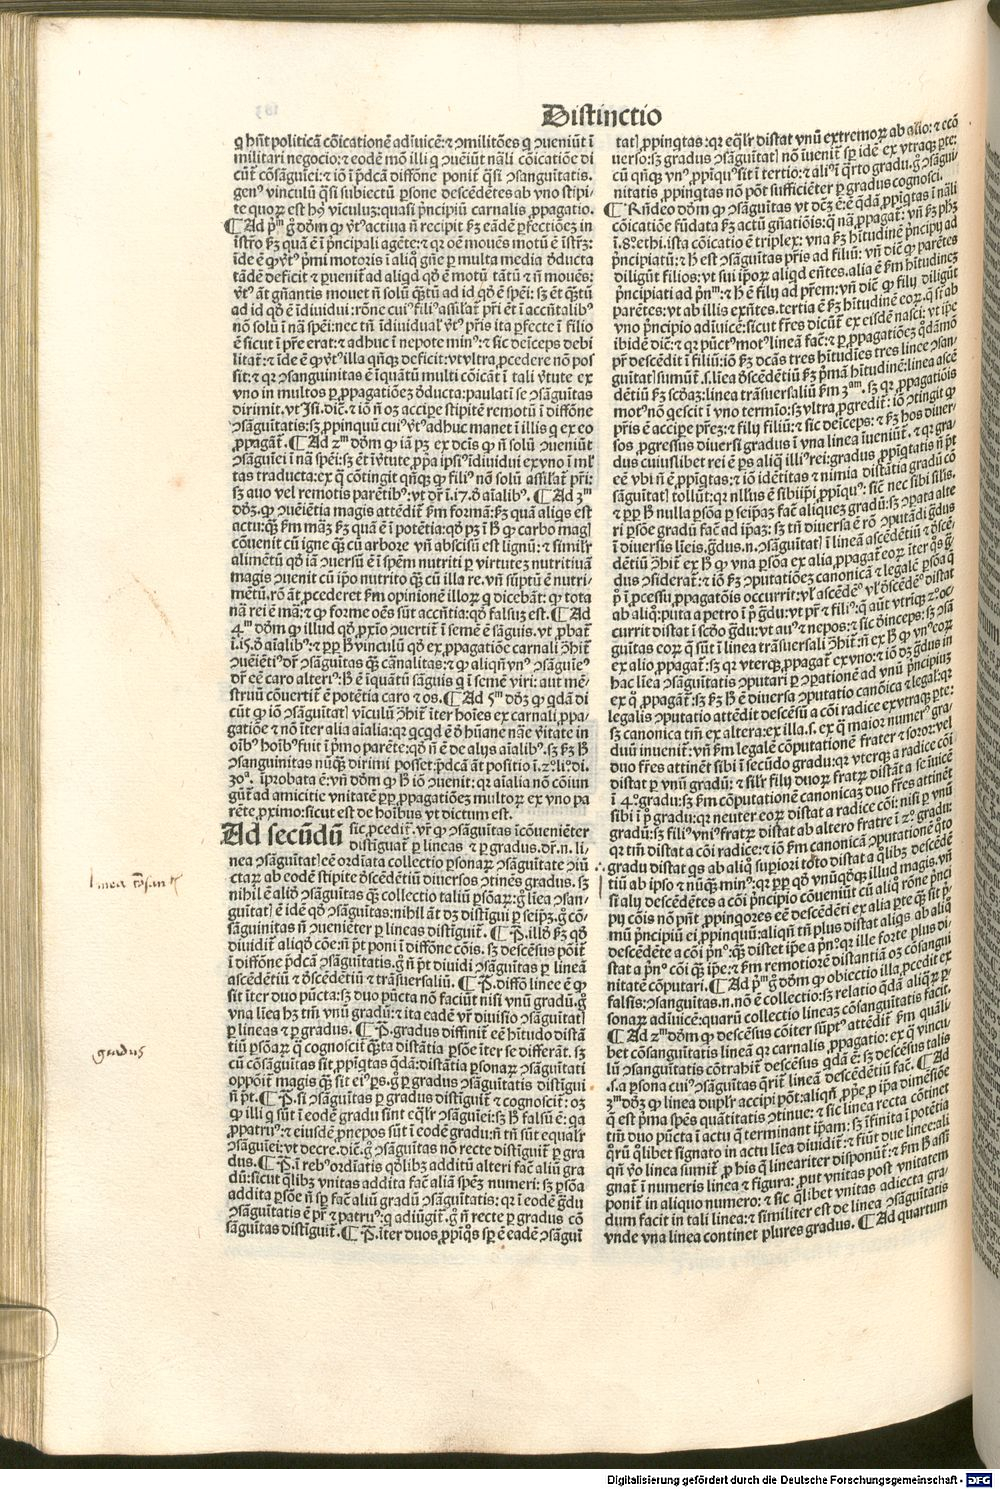 Distinctio
q hñt politicã cõicationẽ adĩuicẽ: ⁊ ꝯmilitões q ꝯueniũt ĩ
militari negocio: ⁊ eodẽ mõ illi q ꝯueiũt nãli cõicatiõe di
cũt̃ cõsãguiei: ⁊ iõ ĩ p̃dcã diffõne ponit̃ q̃si ꝯsanguinitas.
genꝰ vinculũ q̃si subiectũ ꝑsone descẽdẽtes ab vno stipi⸗
te quoꝝ est hꝰ vĩculuꝫ: quasi p̃ncipiũ carnalis ꝓpagatio.
¶ Ad pᵐ g̊ dõm ꝙ ỹtꝰ actiua ñ recipit̃ ẜꝫ eãdẽ ꝑfectiõeꝫ in
ĩstr̃o ẜꝫ quã ẽ ĩ p̃ncipali agẽte: ⁊ qꝛ oẽ mouẽs motũ ẽ ĩstr̃ꝫ:
ĩde ẽ ꝙ ỹtꝰ p̃mi motoris ĩ aliq̊ gñe ꝑ multa media ꝺ̃ducta
tãdẽ deficit ⁊ ꝑuenit̃ ad aliqd qd̾ ẽ motũ tãtũ ⁊ ñ mouẽs:
ỹtꝰ ãt gñantis mouet ñ solũ q̃ꝫtũ ad id qd̾ ẽ spẽi: sꝫ ẽt q̃ꝫtũ
ad id qd̾ ẽ ĩdiuidui: rõne cuiꝰ filiꝰ assilat̃ pr̃i ẽt ĩ accñtalibꝰ
nõ solũ ĩ nã spẽi: nec tñ ĩdiuidual̾ ỹtꝰ pr̃is ita ꝑfecte ĩ filio
ẽ sicut ĩ pr̃e erat: ⁊ adhuc ĩ nepote minꝰ: ⁊ sic deĩceps debi
litat̃: ⁊ ĩde ẽ ꝙ ỹtꝰ illa qñqꝫ deficit: vt vltra ꝓcedere nõ pos
sit: ⁊ qꝛ ꝯsanguinitas ẽ ĩquãtũ multi cõicãt ĩ tali ỹtute ex
vno in multos ꝑ ꝓpagatiõeꝫ ꝺ̃ducta: paulatĩ se ꝯsãguitas
dirimit. vt Jsi. dic̃. ⁊ iõ ñ oꝫ accipe stipitẽ remotũ ĩ diffõne
ꝯsãguitatis: sꝫ ꝓpinquũ cuiꝰ ỹtꝰ adhuc manet ĩ illis q ex eo
ꝓpagãt̃. ¶ Ad 2ᵐ dõm ꝙ iã pꝫ ex dcis ꝙ ñ solũ ꝯueniũt
ꝯsãguiei ĩ nã spẽi: sꝫ ẽt ĩ ỹtute ꝓpa ipsiꝰ ĩdiuidui ex vno ĩ ml̾
tas traducta: ex q̊ cõtingit qñqꝫ ꝙ filiꝰ nõ solũ assilat̃ pr̃i:
sꝫ auo vel remotis parẽtibꝰ: vt dr̃ ĩ.17. ð aĩalibꝰ. ¶ Ad 3ᵐ
dõꝫ. ꝙ ꝯueiẽtia magis attẽdit̃ ẜm formã: ẜꝫ quã aliqs est
actu: q̃ꝫ ẜm mãꝫ ẜꝫ quã ẽ ĩ potẽtia: qd̾ pꝫ ĩ ꝙ carbo mag̃
cõuenit cũ igne q̃ꝫ cũ arbore vñ abscisũ est lignũ: ⁊ simil̾r
alimẽtũ qd̾ iã ꝯuersũ ẽ ĩ spẽm nutriti ꝑ virtutẽ nutritiuã
magis ꝯuenit cũ ip̃o nutrito q̃ꝫ cũ illa re. vñ sũptũ ẽ nutri⸗
mẽtũ. rõ ãt ꝓcederet ẜm opinionẽ illoꝝ q dicebãt: ꝙ tota
nã rei ẽ mã: ⁊ ꝙ forme oẽs sũt accñtia: qd̾ falsuꝫ est. ¶ Ad
4ᵐ dõm ꝙ illud qd̾ ꝓxĩo ꝯuertit̃ ĩ semẽ ẽ sãguis. vt ꝓbat̃
ĩ.15. ð aĩalibꝰ: ⁊ ꝑp vĩculũ qd̾ ex ꝓpagatiõe carnali ꝯhit̃
ꝯueiẽtiꝰ dr̃ ꝯsãguĩtas q̃ꝫ cãnalitas: ⁊ ꝙ aliqñ vnꝰ ꝯsãguĩeꝰ
dr̃ eẽ caro alteriꝰ: ẽ ĩquãtũ sãguis q ĩ semẽ viri: aut mẽ⸗
struũ cõuertit̃ ẽ potẽtia caro ⁊ os. ¶ Ad 5ᵐ dõꝫ ꝙ qdã di
cũt ꝙ iõ ꝯsãguitat̃ vĩculũ ꝯhit̃ ĩter hoĩes ex carnali ꝓpa⸗
gatiõe ⁊ nõ ĩter alia aĩalia: qꝛ qcqd ẽ ð hũane nãe ỹitate in
oĩbꝰ hoĩbꝰ fuit ĩ p̃mo parẽte: qd̾ ñ ẽ de alijs aĩalibꝰ. sꝫ ẜꝫ
ꝯsanguinitas nũq̃ꝫ dirimi posset: p̃dcã ãt positio ĩ.2⁰. li. di.
30ᵃ. ĩprobata ẽ: vñ dõm ꝙ iõ ꝯuenit: qꝛ aĩalia nõ cõiun
gũt̃ ad amicitie vnitatẽ ꝑp ꝓpagatiõeꝫ multoꝝ ex vno pa
rẽte ꝓximo: sicut est de hoĩbus vt dictum est.
Ad secũdũ sic ꝓcedit̃. vr̃ ꝙ ꝯsãguĩtas ĩcõueniẽter
distiguat̃ ꝑ lineas ⁊ ꝑ gradus. dr̃.n. li⸗
nea ꝯsãguitat̃ eẽ ordĩata collectio ꝑsonaꝝ ꝯsãguitate ꝯiũ
ctaꝝ ab eodẽ stipite ꝺ̃scẽdẽtiũ diuersos ꝯtinẽs gradus. sꝫ
nihil ẽ aliõ ꝯsãguĩtas q̃ꝫ collectio taliũ ꝑsõaꝝ: g̊ lĩea ꝯsan⸗
guĩtat̃ ẽ idẽ qd̾ ꝯsãguĩtas: nihil ãt dꝫ distĩgui ꝑ seip̃ꝫ. g̊ cõ⸗
sãguĩnitas ñ ꝯueniẽter ꝑ lineas distĩguit̃. ¶ P̃. illõ ẜꝫ qd̾
diuidit̃ aliqd̾ cõe: ñ p̃t poni ĩ diffõne cõis. sꝫ descẽsus põit̃
ĩ diffõne p̃dcã ꝯsãguitatis. g̊ ñ p̃t diuidi ꝯsãguĩtas ꝑ lineã
ascẽdẽtiũ ⁊ ꝺ̃scẽdẽtiũ ⁊ trãsuersaliũ. ¶ P̃. diffõ linee ẽ ꝙ
sit ĩter duo pũcta: sꝫ duo pũcta nõ faciũt nisi vnũ gradũ. g̊
vna lĩea hꝫ tm̃ vnũ gradũ: ⁊ ita eadẽ vr̃ diuisio ꝯsãguitat̃
ꝑ lineas ⁊ ꝑ gradus. ¶ P̃. gradus diffinit̃ eẽ hĩtudo distã
tiũ ꝑsõaꝝ q̃ cognoscit̃ q̃ꝫta distãtia ꝑsõe ĩter se differãt. sꝫ
cũ cõsãguitas sit ꝓpiqtas qdã: distãtia ꝑsonaꝝ ꝯsãguitati
oppõit̃ magis q̃ꝫ sit eiꝰ ps. g̊ ꝑ gradus ꝯsãguĩtatis distĩgui
ñ p̃t. ¶ P̃. si ꝯsãguĩtas ꝑ gradus distĩguit̃ ⁊ cognoscit̃: oꝫ
ꝙ illi q sũt ĩ eodẽ gradu sint eq̃l̾r ꝯsãguĩei: sꝫ falsũ ẽ: qa
ꝓpatruꝰ: ⁊ eiusdẽ ꝓnepos sũt ĩ eodẽ gradu: ñ tñ sũt equal̾r
ꝯsãguĩei: vt decre. dic̃. g̊ ꝯsãguĩtas nõ recte distĩguit̃ ꝑ gra
dus. ¶ P̃. ĩ rebꝰ ordĩatis qd̾libꝫ additũ alteri fac̃ aliũ gra
dũ: sicut q̃libꝫ vnitas addita fac̃ aliã spẽꝫ numeri: sꝫ ꝑsõa
addita ꝑsõe ñ sp̃ fac̃ aliũ gradũ ꝯsãguĩtatis: qꝛ ĩ eodẽ g̃du
ꝯsãguĩtatis ẽ pr̃ ⁊ patruꝰ: q adiũgit̃. g̊ ñ recte ꝑ gradus cõ
sãguĩtas distĩguit̃. ¶ P̃. ĩter duos ꝓpĩqs sp̃ ẽ eadẽ ꝯsãgui
tat̃ ꝓpinqtas: qꝛ eq̃l̾r distat vnũ extremoꝝ ab alio: ⁊ ecõ
uerso: sꝫ gradus ꝯsãguitat̃ nõ ĩuenit̃ sp̃ idẽ ex vtraqꝫ pte:
cũ qñqꝫ vnꝰ ꝓpĩquꝰ sit ĩ tertio: ⁊ aliꝰ ĩ q̃rto gradu. g̊ ꝯsãgui⸗
nitatis ꝓpinqtas nõ põt sufficiẽter ꝑ gradus cognosci.
¶ Rñdeo dõm ꝙ ꝯsãguĩtas vt dcm̃ ẽ: ẽ qdã ꝓpĩqtas ĩ nãli
cõicatiõe fũdata ẜꝫ actũ gñatiõis: q̃ nã ꝓpagat̃: vñ ẜꝫ phꝫ
ĩ.8. ethi. ista cõicatio ẽ triplex: vna ẜꝫ hĩtudinẽ p̃ncipij ad
p̃ncipiatũ: ⁊ est ꝯsãguĩtas pr̃is ad filiũ: vñ dic̃ ꝙ parẽtes
diligũt filios: vt sui ip̃oꝝ aliqd eñtes. alia ẽ ẜm hĩtudineꝫ
p̃ncipiati ad p̃nᵐ: ⁊ ẽ filij ad pr̃em: vñ dic̃ ꝙ filij diligũt
parẽtes: vt ab illis exñtes. tertia ẽ ẜꝫ hĩtudinẽ eoꝝ. q sũt ab
vno p̃ncipio adĩuicẽ: sicut fr̃es dicũt̃ ex eisdẽ nasci: vt ip̃e
ibidẽ dic̃: ⁊ qꝛ pũctꝰ motꝰ lineã fac̃: ⁊ ꝑ ꝓpagatiõeꝫ q̊dãmõ
pr̃ descẽdit ĩ filiũ: iõ ẜꝫ dcãs tres hĩtudies tres linee ꝯsan⸗
guĩtat̃ sumũt̃. s. lĩea ꝺ̃scẽdẽtiũ ẜꝫ p̃mã hĩtudinẽ: linea ascẽ
dẽtiũ ẜꝫ scdãꝫ: linea trãsuersaliũ ẜm 3ᵃᵐ. sꝫ qꝛ ꝓpagatiõis
motꝰ nõ qescit ĩ vno termĩo: sꝫ vltra ꝓgredit̃: iõ ꝯtingit ꝙ
pr̃is ẽ accipe pr̃eꝫ: ⁊ filij filiũ: ⁊ sic deĩceps: ⁊ ẜꝫ hos diuer⸗
sos ꝓgressus diuersi gradus ĩ vna linea ĩueniũt̃. ⁊ qꝛ gra⸗
dus cuiuslibet rei ẽ ps aliq̃ illiꝰ rei: gradus ꝓpĩqtatis ñ p̃t
eẽ vbi ñ ẽ ꝓpĩqtas: ⁊ iõ idẽtitas ⁊ nimia distãtia gradũ cõ
sãguitat̃ tollũt: qꝛ nllꝰ est sibiip̃i ꝓpiqꝰ: sic̃ nec sibi silis.
⁊ ꝑp nulla ꝑsõa ꝑ seip̃aꝫ fac̃ aliqueꝫ gradũ: sꝫ ꝯpata alte
ri ꝑsõe gradũ fac̃ ad ip̃aꝫ: sꝫ tñ diuersa ẽ rõ ꝯputãdi g̃dus
ĩ diuersis lĩeis. g̃dus.n. ꝯsãguitat̃ ĩ lineã ascẽdẽtiũ ⁊ ꝺ̃scẽ⸗
dẽtiũ ꝯhit̃ ex ꝙ vna ꝑsõa ex alia ꝓpagat̃ eoꝝ ĩter q̊s g̃
dus ꝯsiderat̃: ⁊ iõ ẜꝫ ꝯputatiõeꝫ canonicã ⁊ legalẽ ꝑsõa q̃
p̃ ĩ ꝓcessu ꝓpagatõis occurrit: vl̾ ascẽdẽꝰ vl̾ ꝺ̃scẽdẽꝰ distat
ab aliq̊: puta a petro ĩ p̃ g̃du: vt pr̃ ⁊ filiꝰ: q̃ aũt vtriqꝫ 2⁰ oc⸗
currit distat ĩ scdo g̃du: vt auꝰ ⁊ nepos: ⁊ sic ꝺ̃inceps: sꝫ ꝯsã
guĩtas eoꝝ q sũt ĩ linea trãsuersali ꝯhit̃: ñ ex ꝙ vnꝰ eoꝝ
ex alio ꝓpagat̃: sꝫ qꝛ vterqꝫ ꝓpagat̃ ex vno: ⁊ iõ dꝫ g̃dus in
hac lĩea ꝯsãguĩtatis ꝯputari ꝑ ꝯpationẽ ad vnũ p̃ncipiuꝫ
ex q̊ ꝓpagat̃: sꝫ ẜꝫ ẽ diuersa ꝯputatio canõica ⁊ legal̾: qꝛ
legalis ꝯputatio attẽdit descẽsũ a cõi radice ex vtraqꝫ pte:
sꝫ canonica tm̃ ex altera: ex illa. s. ex q̃ maior numerꝰ gra⸗
duũ inuenit̃: vñ ẜm legalẽ cõputationẽ frater ⁊ soror: vel
duo fr̃es attinẽt sibi ĩ secũdo gradu: qꝛ vterqꝫ a radice cõi
distat ꝑ vnũ gradũ: ⁊ sil̾r filij duoꝝ fratrũ distãt a se ĩuicẽ
ĩ 4⁰. gradu: sꝫ ẜm cõputationẽ canonicaꝫ duo fr̃es attinẽt
sibi ĩ p̃ gradu: qꝛ neuter eoꝝ distat a radice cõi: nisi ꝑ vnũ
gradũ: sꝫ filiꝰ vniꝰ fratrũ distat ab altero fratre ĩ 2⁰ gradu:
qꝛ tm̃ distat a cõi radice: ⁊ iõ ẜm canonicã ꝯputationẽ q̊to
gradu distat qs ab aliq̊ supiori toto distat a q̃libꝫ descẽdẽ
tiũ ab ipso ⁊ nũq̃ꝫ minꝰ: qꝛ ꝑp qd̾ vnũqd̾qꝫ illud magis. vñ
si alij descẽdẽtes a cõi p̃ncipio cõueniũt cũ aliq̊ rõne p̃nci
pij cõis nõ pñt ꝓpinqores eẽ descẽdẽti ex alia pte q̃ꝫ sit p̃⸗
mũ p̃ncipiũ ei ꝓpinquũ: aliqñ tñ plus distat aliqs ab aliq̊
descẽdẽte a cõi p̃nᵒ: q̃ꝫ distet ip̃e a p̃nᵒ: qꝛ ille forte plus di⸗
stat a p̃nᵒ cõi q̃ꝫ ip̃e: ⁊ ẜm remotiorẽ distantiã oꝫ cõsangui
nitatẽ cõputari. ¶ Ad pᵐ g̊ dõm ꝙ obiectio illa ꝓcedit ex
falsis: ꝯsanguĩtas.n. nõ ẽ collectio: sꝫ relatio qdã aliq̃ꝝ ꝑ⸗
sonarũ adĩuicẽ: quarũ collectio lineaꝫ cõsanguĩtatis facit.
¶ Ad 2ᵐ dõm ꝙ descẽsus cõiter sũptꝰ attẽdit̃ ẜm quãli⸗
bet cõsanguĩtatis lineã qꝛ carnalis ꝓpagatio: ex q̃ vincu
lũ ꝯsanguĩtatis cõtrahit̃ descẽsus qdã ẽ: sꝫ descẽsus talis
.s. a ꝑsona cuiꝰ ꝯsãguĩtas q̃rit̃ lineã descẽdẽtiũ fac̃. ¶ Ad
3ᵐ dõꝫ ꝙ linea dupl̾r accipi põt: aliqñ ꝓpe ꝑ ip̃a dimẽsiõe
q̃ est p̃ma spẽs quãtitatis ꝯtinue: ⁊ sic linea recta cõtinet
tm̃ duo pũcta ĩ actu q̃ terminant ip̃am: sꝫ ĩfinita ĩ potẽtia
q̊rũ q̊libet signato in actu lĩea diuidit̃: ⁊ fiũt due linee: ali
qñ ỹo linea sumit̃ ꝓ his q̃ lineariter disponũt̃: ⁊ ẜm assi
gnat̃ ĩ numeris linea ⁊ figura: ꝓut vnitas post vnitatem
ponit̃ in aliquo numero: ⁊ sic q̃libet vnitas adiecta gra⸗
dum facit in tali linea: ⁊ similiter est de linea ꝯsãguĩtatis
vnde vna linea continet plures gradus. ¶ Ad quartum
gradus
Digitalisierung gefördert durch die Deutsche Forschungsgemeinschaft - DFG